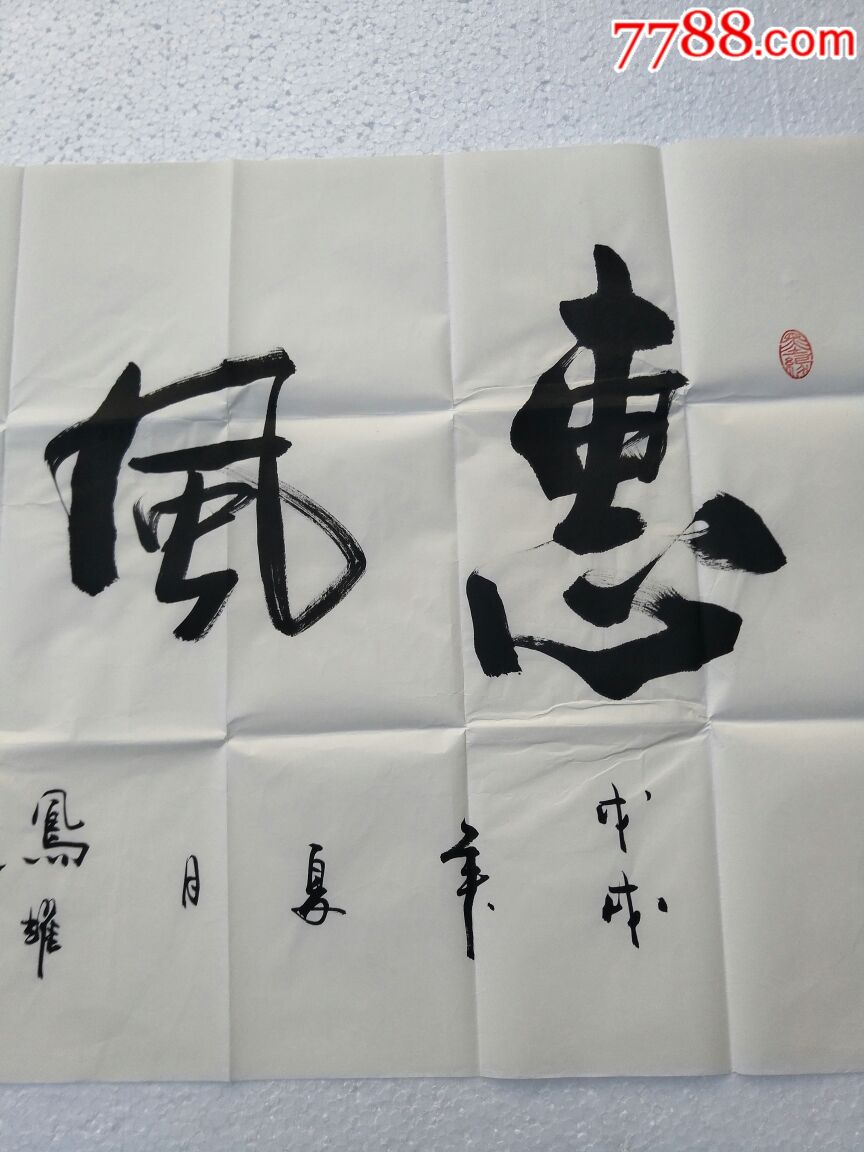 7788.com
惠風
戊戌
年
夏
月
鳳耀